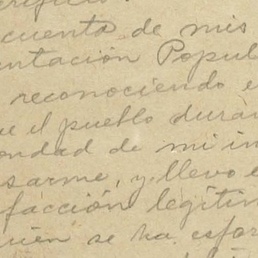 cuenta de mis
entación Popul
reconociendo e
ue el pueblo durán
ondad de mi in
sarme, y llevo e
facción legítim
uién se ha esfor